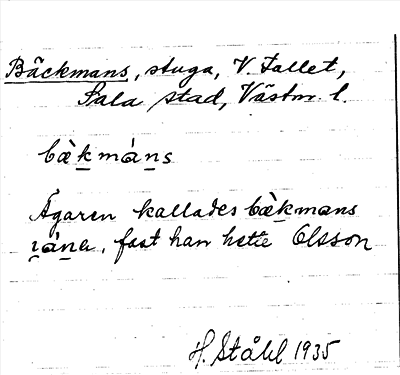 Bäckmans, stuga, V. Fallet,
Sala stad, Västm. l.
bæ̀km̀áns
Ägaren kallades bæ̀kmans
fast han hette Olsson
H. Ståhl 1935